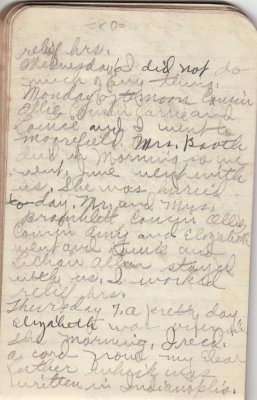 -80-
relief hrs.
Tuesday 6 I did not do
much of any thing.
Monday afternoon Cousin
Ollie, Susan Carrie and
and I went to
Moorefield. Mrs. Booth
died Morning so we
went, June went with
us. She was buried
to-day. Mr. and Mrs.
Bramblett Cousin Ollie,
Cousin Amy and Elizabeth
went and and
stayed
with us. I worked
relief hrs.
Thursday 7. a pretty day
Elizabeth was
morning, I rec'd.
a card from my dear
Luther which was
written in Indianapolis.